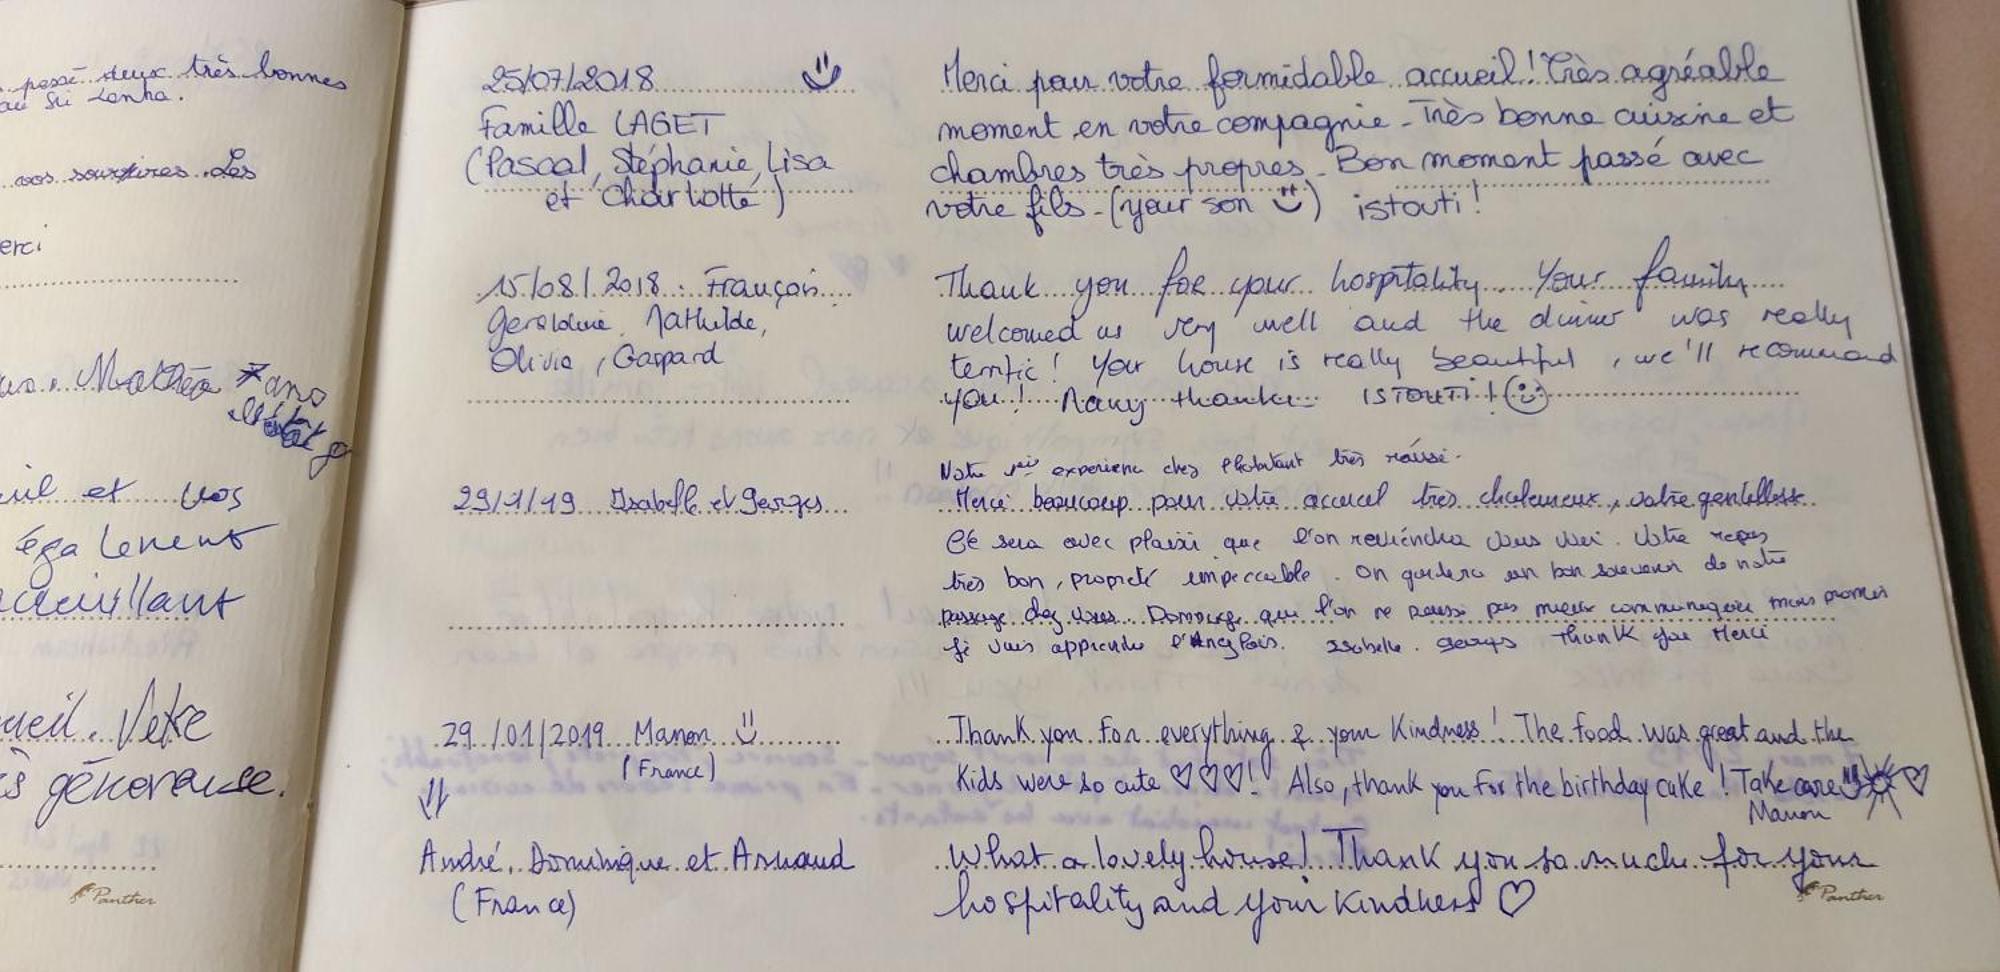 passé deux très bonnes
au Sri Lanka.
vos sourires. Les
erci
Mathéa 7 ans
et vos
également
accueillant
ueil. Votre
s généreuse.
Panther
25/07/2018
Famille LAGET
(Pascal, Stéphanie, Lisa
et Charlotte)
Merci pour votre formidable accueil! Très agréable
moment en votre compagnie. Très bonne cuisine et
chambres très propres. Bon moment passé avec
votre fils. (your son) istouti!
15/08/2018. François
Geraldine, Mathilde,
Olivia, Gaspard
Thank you for your hospitality. Your family
welcomed us very well and the dinner was really
terrific! Your house is really beautiful, we'll recommand
you! Many thanks ISTOUTI!
29/1/19 Isabelle et Georges
Notre 1ère experience chez l'habitant très réussi.
Merci beaucoup pour votre accueil très chaleureux, votre gentillesse
Ce sera avec plaisir que l'on reviendra vous voir. Votre repas
très bon, propreté impeccable. On gardera un bon souvenir de notre
passage chez vous. Dommage que l'on ne puisse pas mieux communiquer mais promis
je vais apprendre l'Anglais. Isabelle. Georges Thank you Merci
29/01/2019 Manon
(France)
Thank you for everything & your kindness! The food was great and the
kids were so cute ♡♡♡! Also, thank you for the birthday cake! Take care ♡
Manon
André, Dominique et Arnaud
(France)
What a lovely house! Thank you so much for your
hospitality and your kindness ♡
Panther